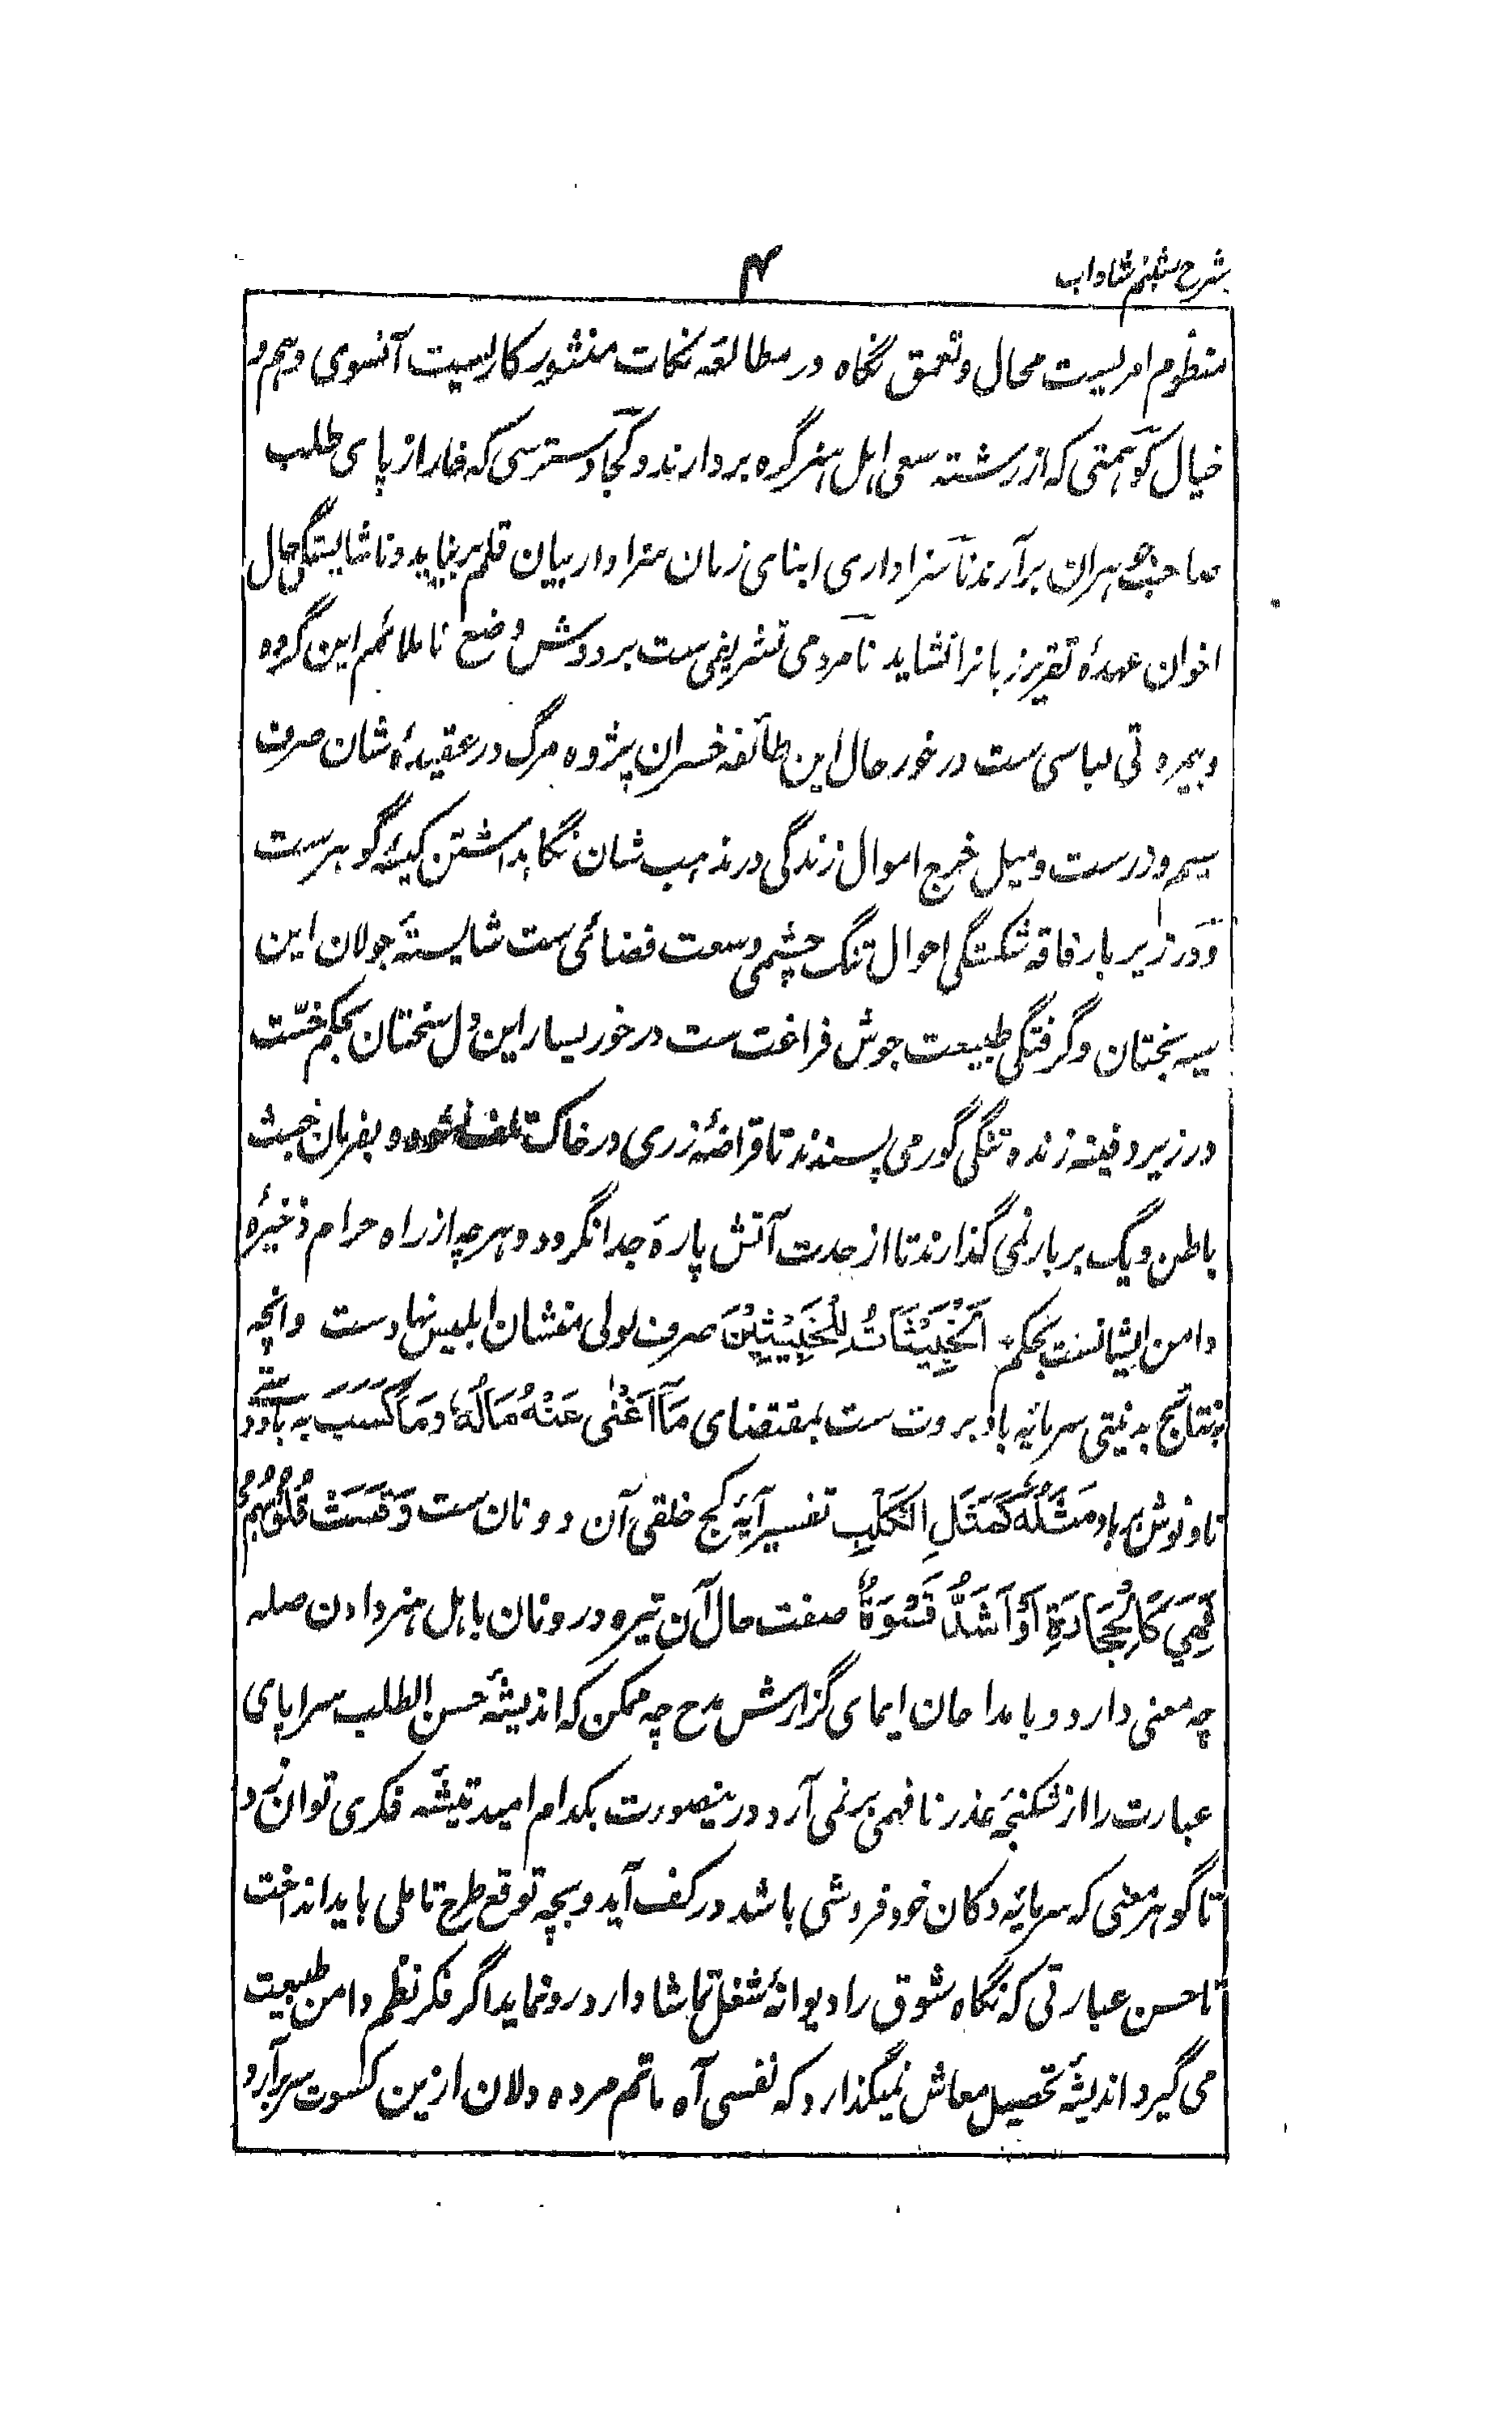 شرح شبنم شاداب
۴
منظوم امریست محال و تعمق نگاه در مطالعهٔ نکات منثور کاریست آنسوی وهم و
خیال کو همتی که از رشته سعی اهل هنر گره بردارند و کجا دسترسی که خار از پای طلب
صاحب جوهران برآرند ناسزاداری ابنای زمان سزاوار بیان قلم برنیاید و ناشایستگی حال
اخوان عهدهٔ تقریر زبانرا نشاید نامردمی تشریفی ست بر دوش وضع ناملائم این گروه
و بیمروتی لباسی ست در خور حال این طائفه خسران پژوه مرگ در عقیدهٔ شان صرف
سیم و درست و میل خرج اموال زندگی در مذهب شان نگاهداشتن کیسهٔ گوهرست
و در زیر بار فاقه شکستگی احوال تنگ چشمی وسعت فضائی ست شایستهٔ جولان این
سیه بختان و گرفتگی طبیعت جوش فراغت ست در خور یسار این دل سختان بحکم خسّت
در زیر دفینه زنده تنگی گور می پسندند تا قراضهٔ زری در خاک تلف نشود و بفرمان خبث
باطن دیگ بر بار نمی گذارند تا از حدت آتش پارهٔ جدا نگردد و هرچه از راه حرام ذخیرهٔ
دامن ایشانست بحکم اَلْخَبِیْثَاتُ لِلْخَبِیْثِیْنَ صرف لولی منشان ابلیس نهادست وانچه
نتائج بد نیتی سرمایهٔ باد بروت ست بمقتضای مَآ اَغْنٰی عَنْهُ مَالُهٗ وَمَا کَسَبَ به باد و
ناو نوش برباد مَثَلُهٗ کَمَثَلِ الْکَلْبِ تفسیر آیهٔ کج خلقی آن دونان ست وَقَسَتْ قُلُوْبُهُمْ
فَهِیَ کَالْحِجَارَةِ اَوْ اَشَدُّ قَسْوَةً صفت حال آن تیره درونان باهل هنر دادن صله
چه معنی دارد و با مداحان ایمای گزارش مدح چه ممکن که اندیشهٔ حسن الطلب سراپای
عبارت را از شکنجهٔ عذر نافهمی برنمی آرد درینصورت بکدام امید تیشهٔ فکری توان زد
تا گوهر معنی که سرمایهٔ دکان خودفروشی باشد در کف آید و بچه توقع طرح تاملی باید انداخت
تا حسن عبارتی که نگاه شوق را دیوانهٔ شغل تماشا دارد رو نماید اگر فکر نظم دامن طبیعت
می گیرد اندیشهٔ تحصیل معاش نمیگذارد که نفسی آه ماتم مرده دلان ازین کسوت سر برآرد